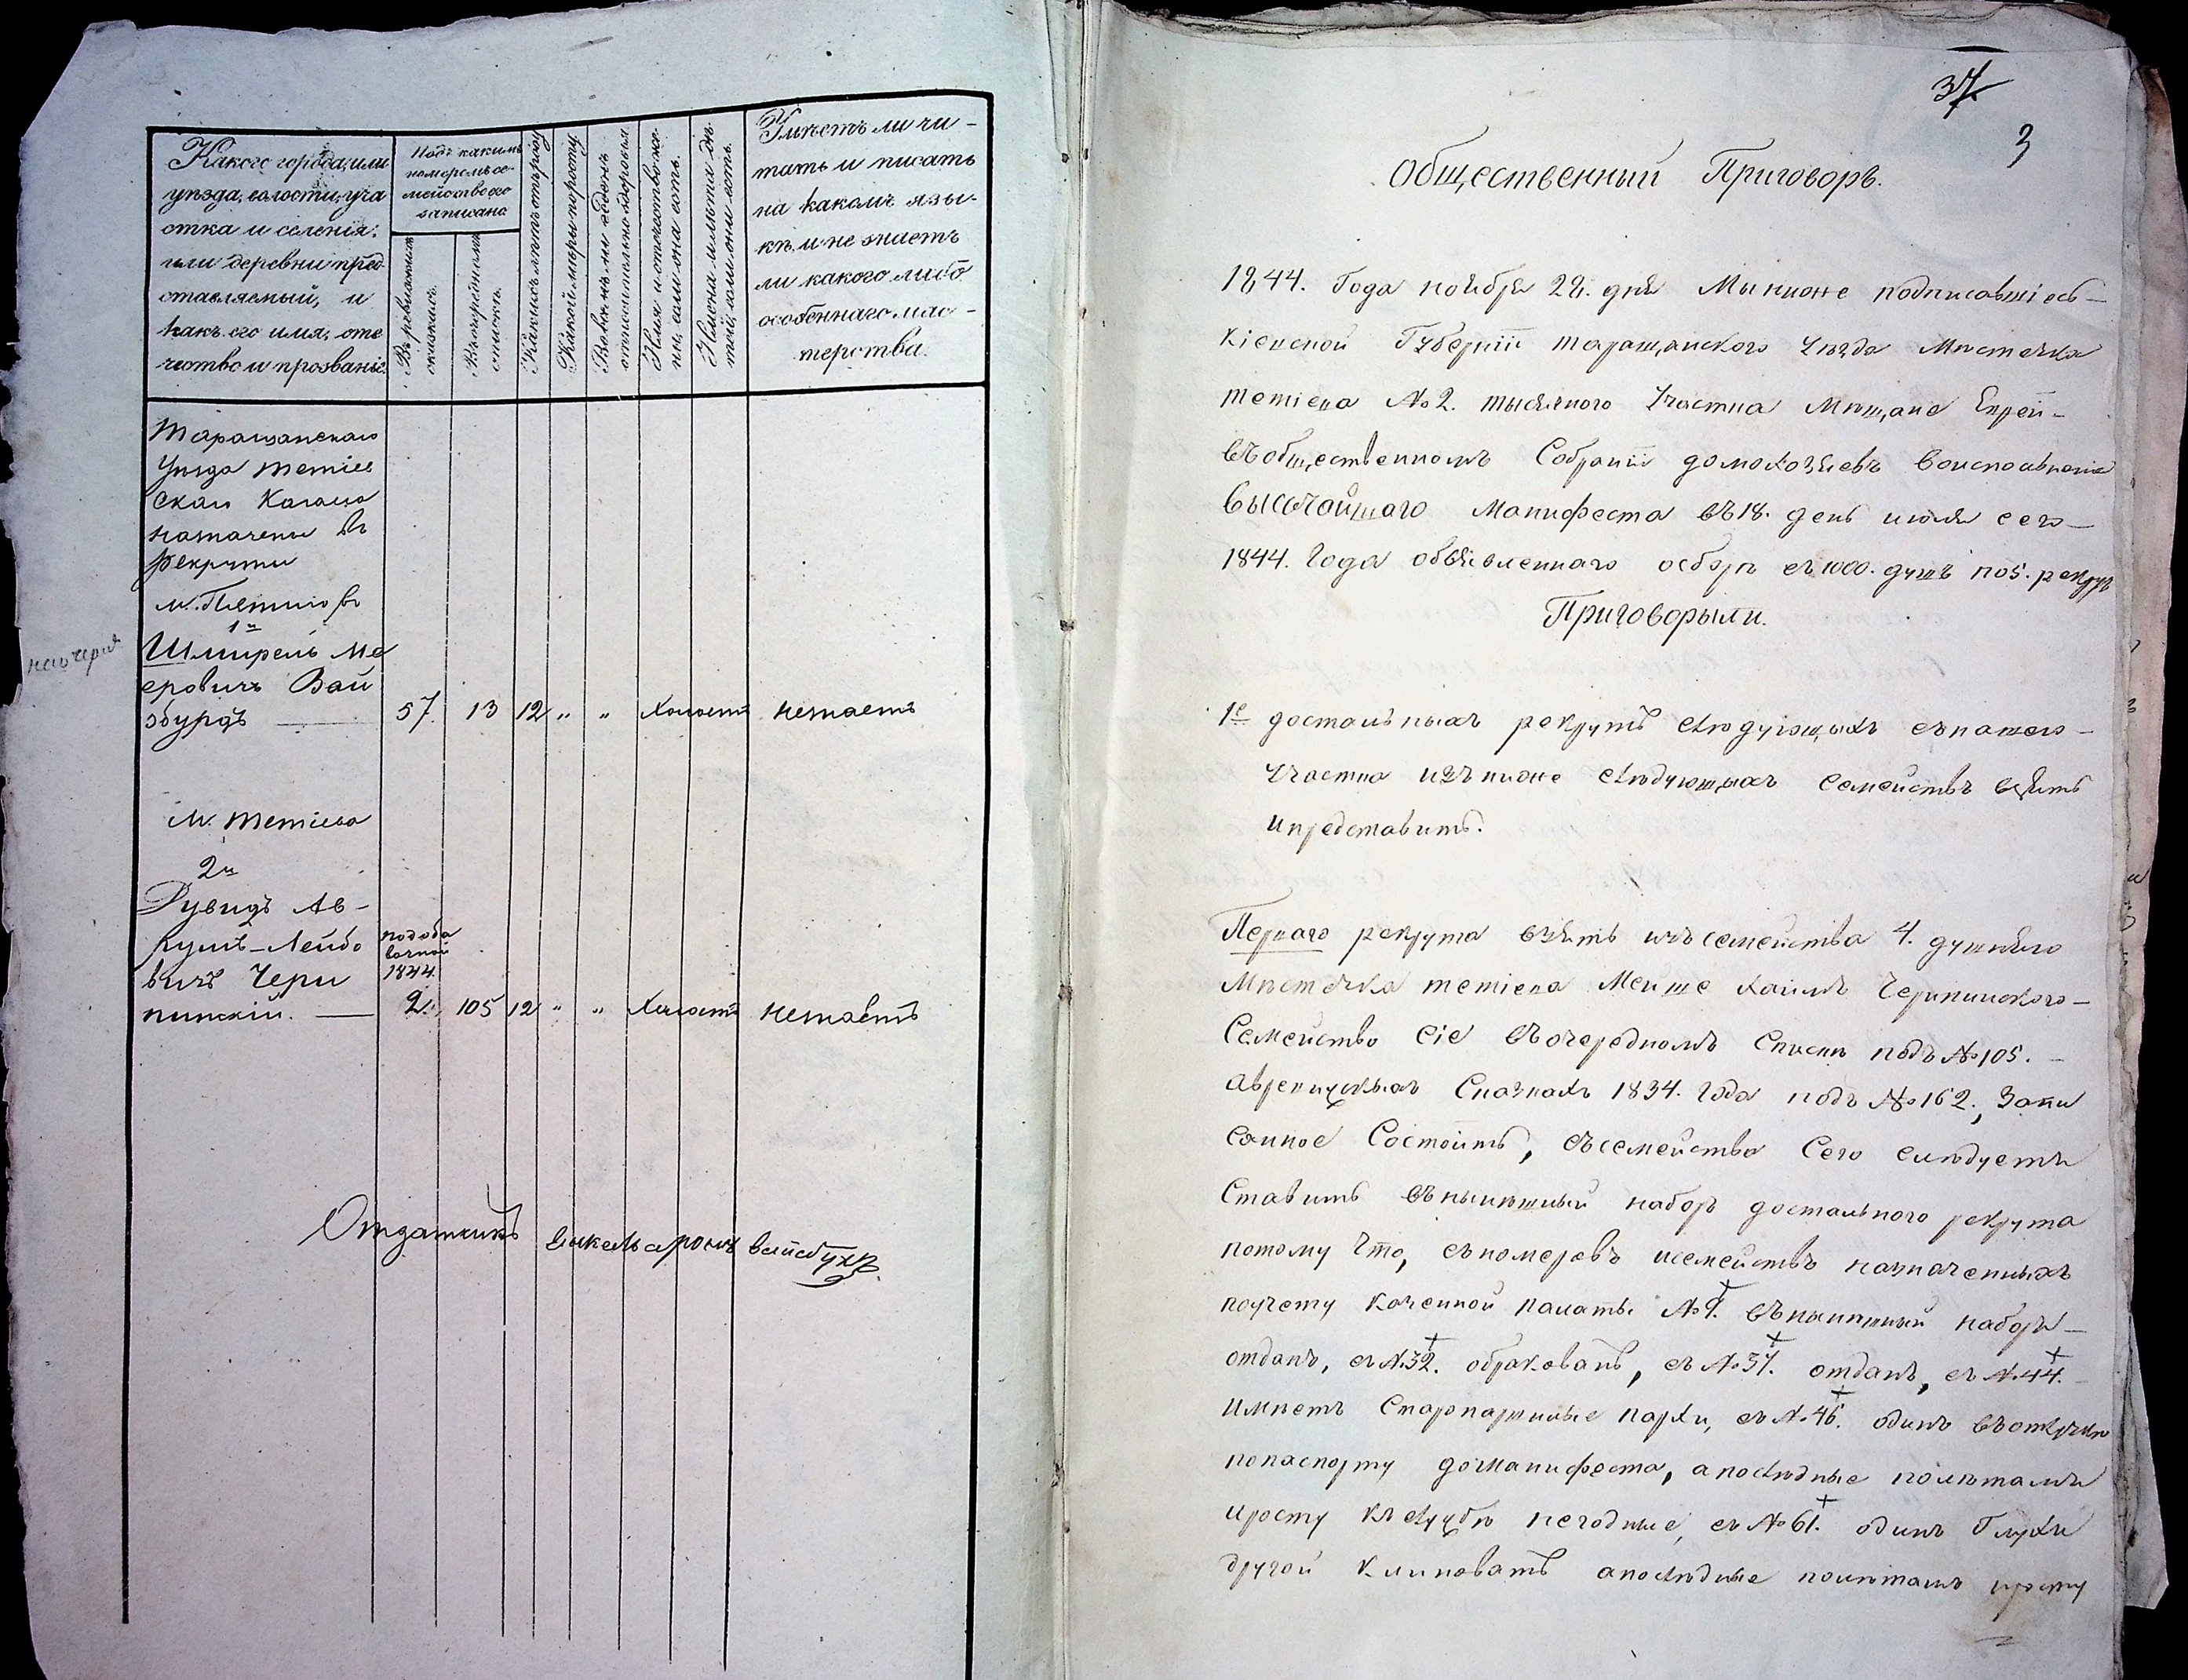 Какого города, или
уѣзда, волости, уча
стка и селенія:
или деревни пред-
ставляемый, и
какъ его имя, оте
чество и прозваніе.
Подъ какимъ
номеромъ се-
мейство его
записано
Въ ревизскихъ
сказкахъ.
Въ очередномъ
спискѣ.
Какихъ лѣтъ отъ роду
Какой мѣры по росту
имя и отчество же-
ны, если она есть.
Имена и лѣта дѣ-
тей, если они есть.
Умѣетъ ли чи-
тать и писать
на какомъ язы-
кѣ и не знаетъ
ли какого либо
особеннаго мас-
терства.
Таращанскаго
Уѣзда Тетіев
скаго Кагала
назначены въ
рекруты
1й
Шмирель Ме
еровичъ Вай
збурдъ — 57. 13 12 " " Холостъ незнаетъ
М. Тетіева
2й
Рувидъ Ав-
румъ-Лейбо
вичъ Чери
пинскій. — 2. 105 12 " " Холостъ незнаетъ
подоба
вочной
1844
Отдатчикъ
37
3
Общественный Приговоръ.
1844. Года ноября 28. дня Мы ниже подписавшіесь-
Кіевской Губерніи таращанского Уѣзда Мѣстечка
тетіева №2. тысячного Участка Мѣщане Евреи-
въ общественномъ Собраніи домохозяевъ воисполненіе
высочайшаго Манифеста въ 18. день июля сего-
1844. Года объявленнаго осборѣ съ 1000. душъ по 5. рекрут
Приговорыли.
1е достальныхъ рекрутъ слѣдующыхъ съ нашего-
Участка изъ ниже слѣдующыхъ Семействъ взять
и представить.
Перваго рекрута взять изъ семейства 4. душняго
Мѣстечка тетіева Меише Хаимъ Черипинского-
Семейство сіе въ очередномъ Спискѣ подъ №105.-
а в ревизскыхъ Сказкахъ 1834. года подъ №162., Запи
санное Состоитъ, съ семейства Сего слѣдуетъ
Ставить въ нынѣшный наборъ достального рекрута
потому что, съ номеровъ и семействъ назначенныхъ
поучету казенной палаты №9. въ нынѣшный наборъ-
отданъ, съ №32. обракованъ, съ №37. отданъ, съ №44.-
имѣетъ Старопаршивые пархи, съ №46. одинъ въ отлучкѣ
попаспорту до манифеста, а послѣдные по лѣтамъ
и росту къ службѣ негодные, съ №61. одинъ Глухи
другой Клиповатъ а послѣдные полѣтамъ и росту